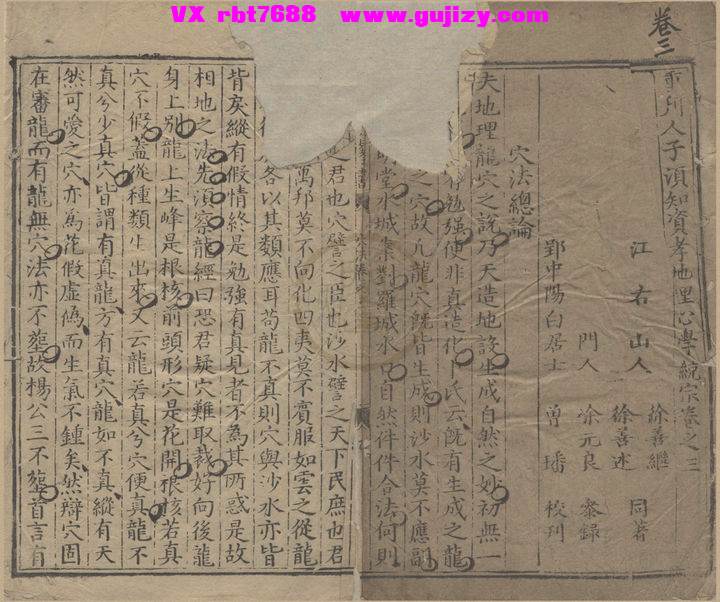 VX rbt7688 www.gujizy.com
卷三
重刊人子須知資孝地理心學統宗卷之三
江右山人 徐善繼 徐善述 同著
門人 徐元良 叅錄
郢中陽白居士 曽璠 校刊
穴法總論
夫地理龍穴之說乃天造地設生成自然之妙初無一
勉强使非真造化卜氏云旣有生成之龍
之穴故凢龍穴旣皆生成則沙水莫不應副
明堂水城案對羅城水口自然件件合法何則
君也穴譬之臣也沙水譬之天下民庶也君
萬邦莫不向化四夷莫不賓服如雲之從龍
各以其類應耳苟龍不真則穴與沙水亦皆
背矣縱有假情終是勉強有真見者不為其所惑是故
相地之法先湏察龍經曰恐君疑穴難取裁好向後龍
身上别龍上生峰是根核前頭形穴是花開根核若真
穴不假蓋從種類生出來又云龍若真兮穴便真龍不
真兮少真穴皆謂有真龍方有真穴龍如不真縱有天
然可愛之穴亦為花假虛偽而生氣不鍾矣然辯穴固
在審龍而有龍無穴法亦不塟故楊公三不塟首言有